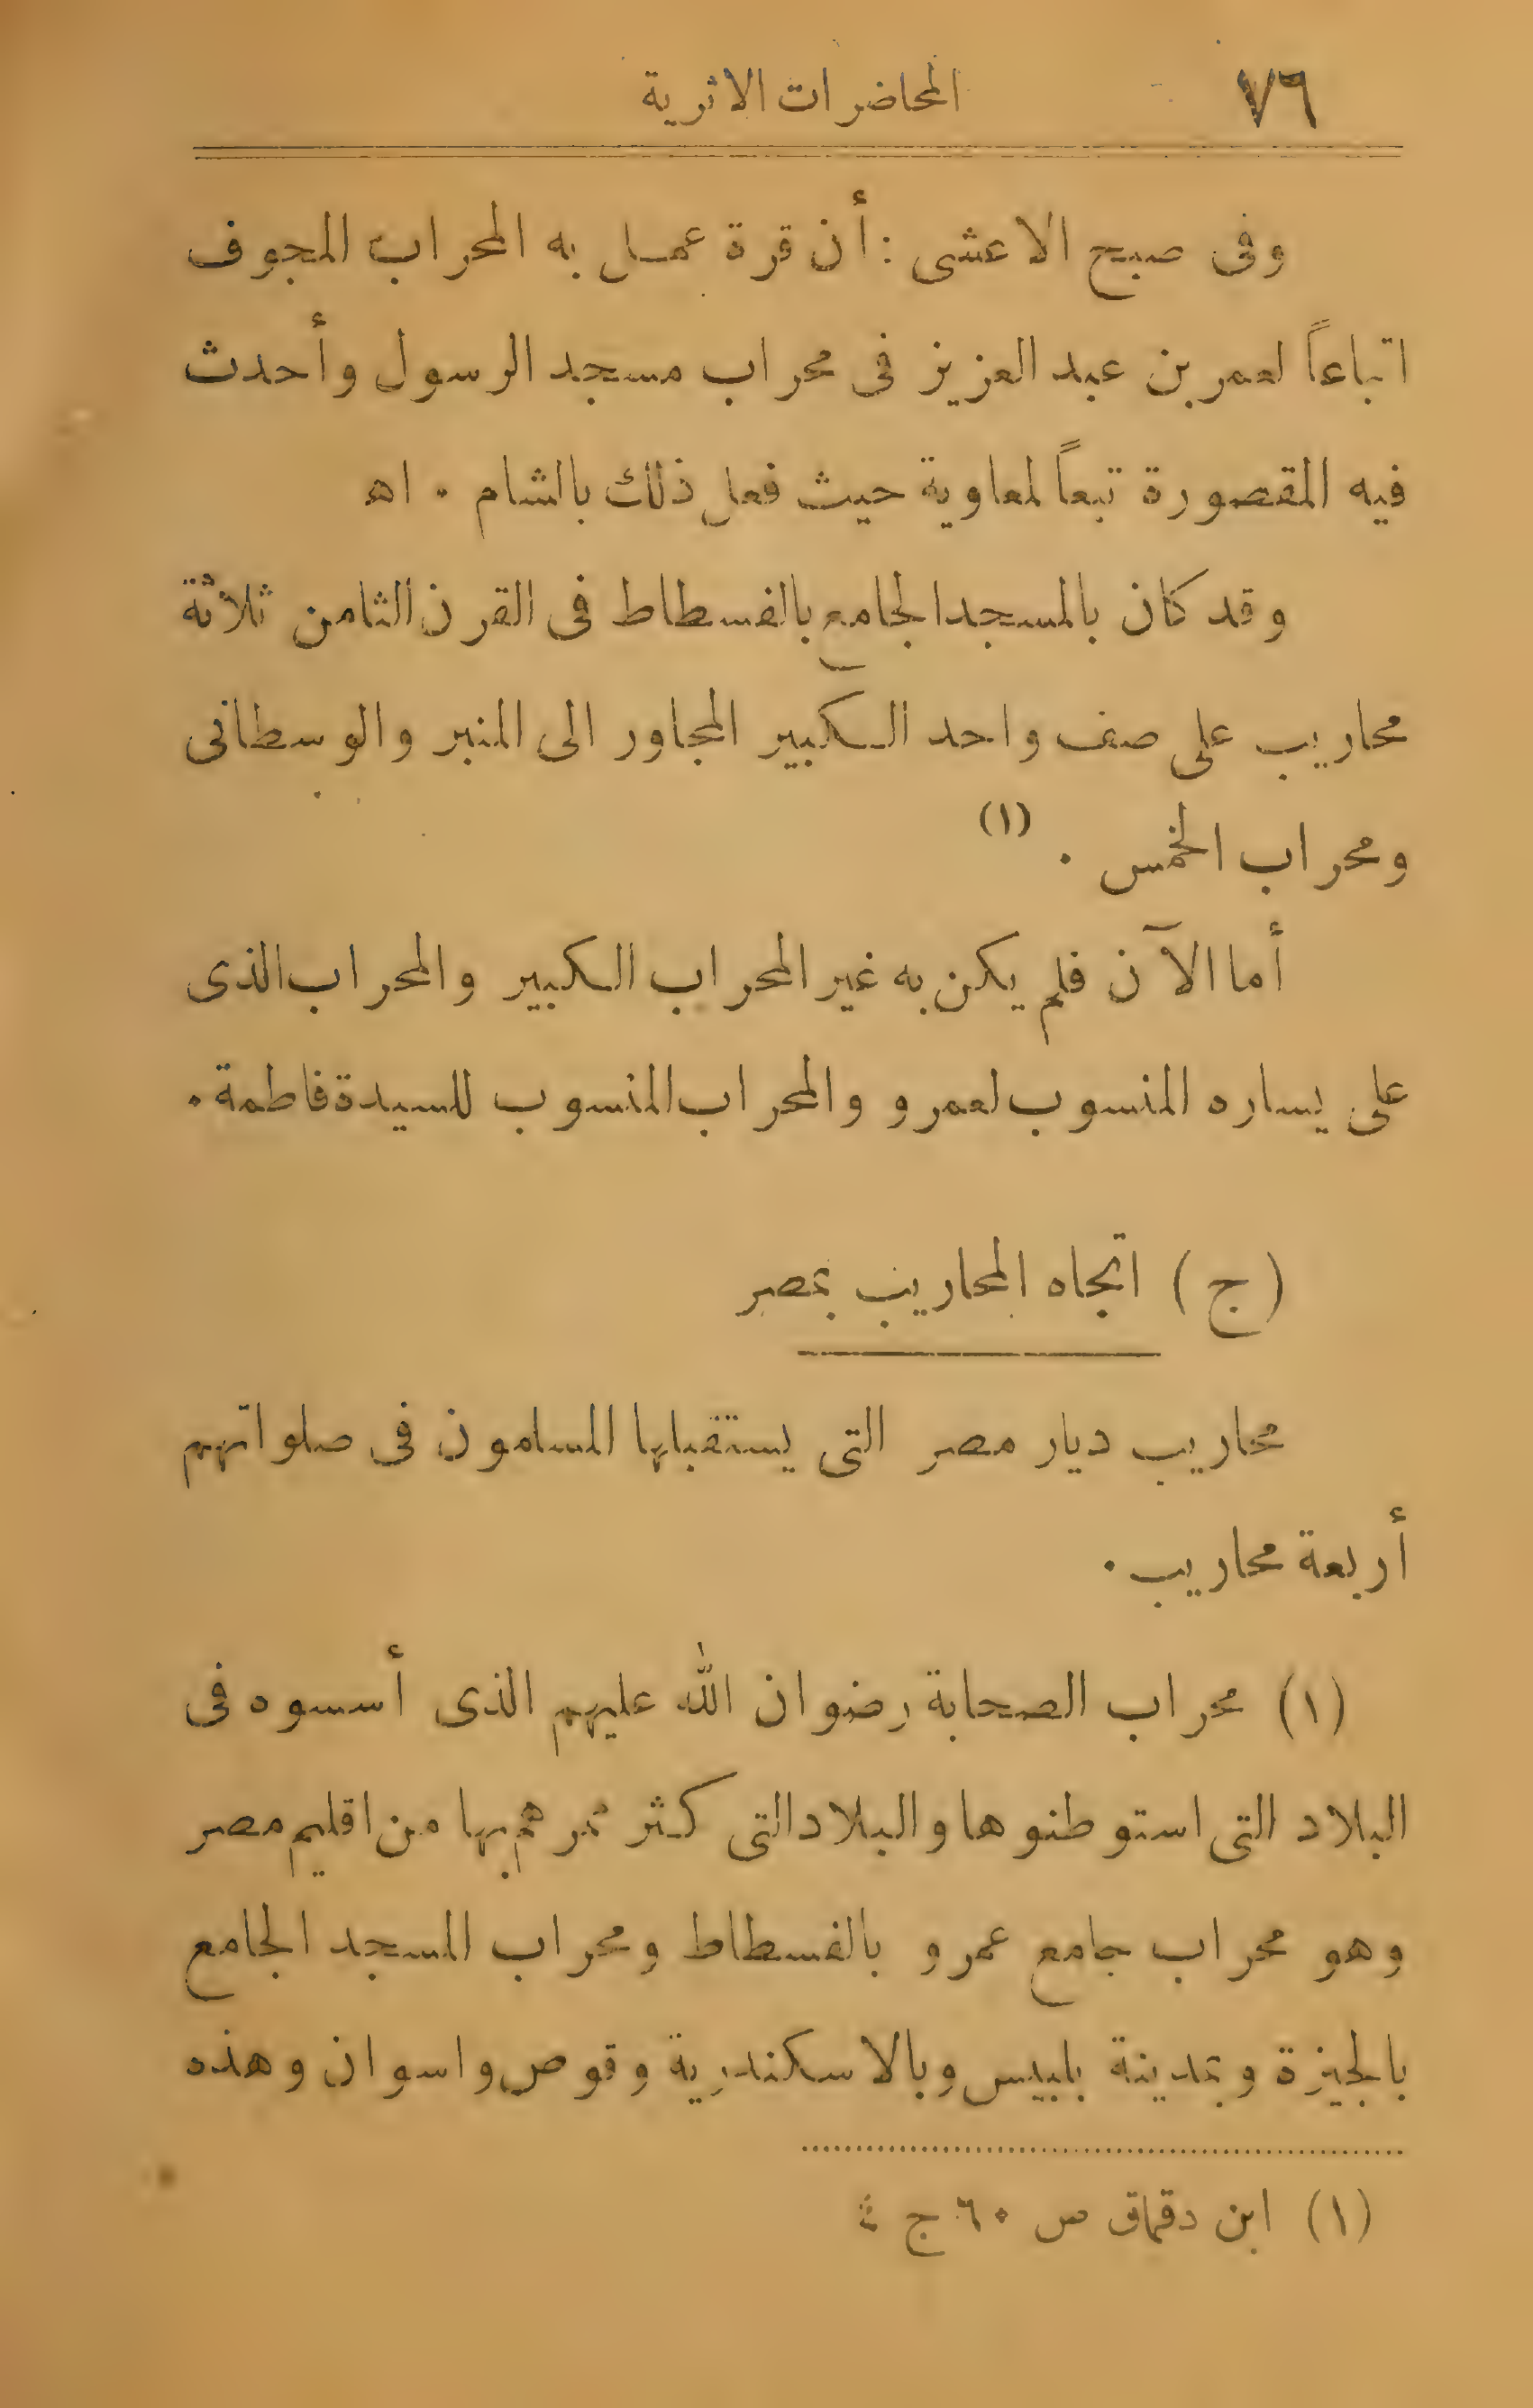 ٧٦
المحاضرات الاثرية
وفى صبح الاعشى : أن قرة عمل به المحراب المجوف
اتباعاً لعمر بن عبد العزيز فى محراب مسجد الرسول وأحدث
فيه المقصورة تبعاً لمعاوية حيث فعل ذلك بالشام . اه
وقد كان بالمسجد الجامع بالفسطاط فى القرن الثامن ثلاثة
محاريب على صف واحد الكبير المجاور الى المنبر والوسطانى
ومحراب الخمس . (١)
أما الآن فلم يكن به غير المحراب الكبير والمحراب الذى
على يساره المنسوب لعمرو والمحراب المنسوب للسيدة فاطمة .
(ج) اتجاه المحاريب بمصر
محاريب ديار مصر التى يستقبلها المسلمون فى صلواتهم
أربعة محاريب .
(١) محراب الصحابة رضوان الله عليهم الذى أسسوه فى
البلاد التى استوطنوها والبلاد التى كثر ممرهم بها من اقليم مصر
وهو محراب جامع عمرو بالفسطاط ومحراب المسجد الجامع
بالجيزة وبمدينة بلبيس وبالاسكندرية وقوص واسوان وهذه
(١) ابن دقماق ص ٦٠ ج ٤